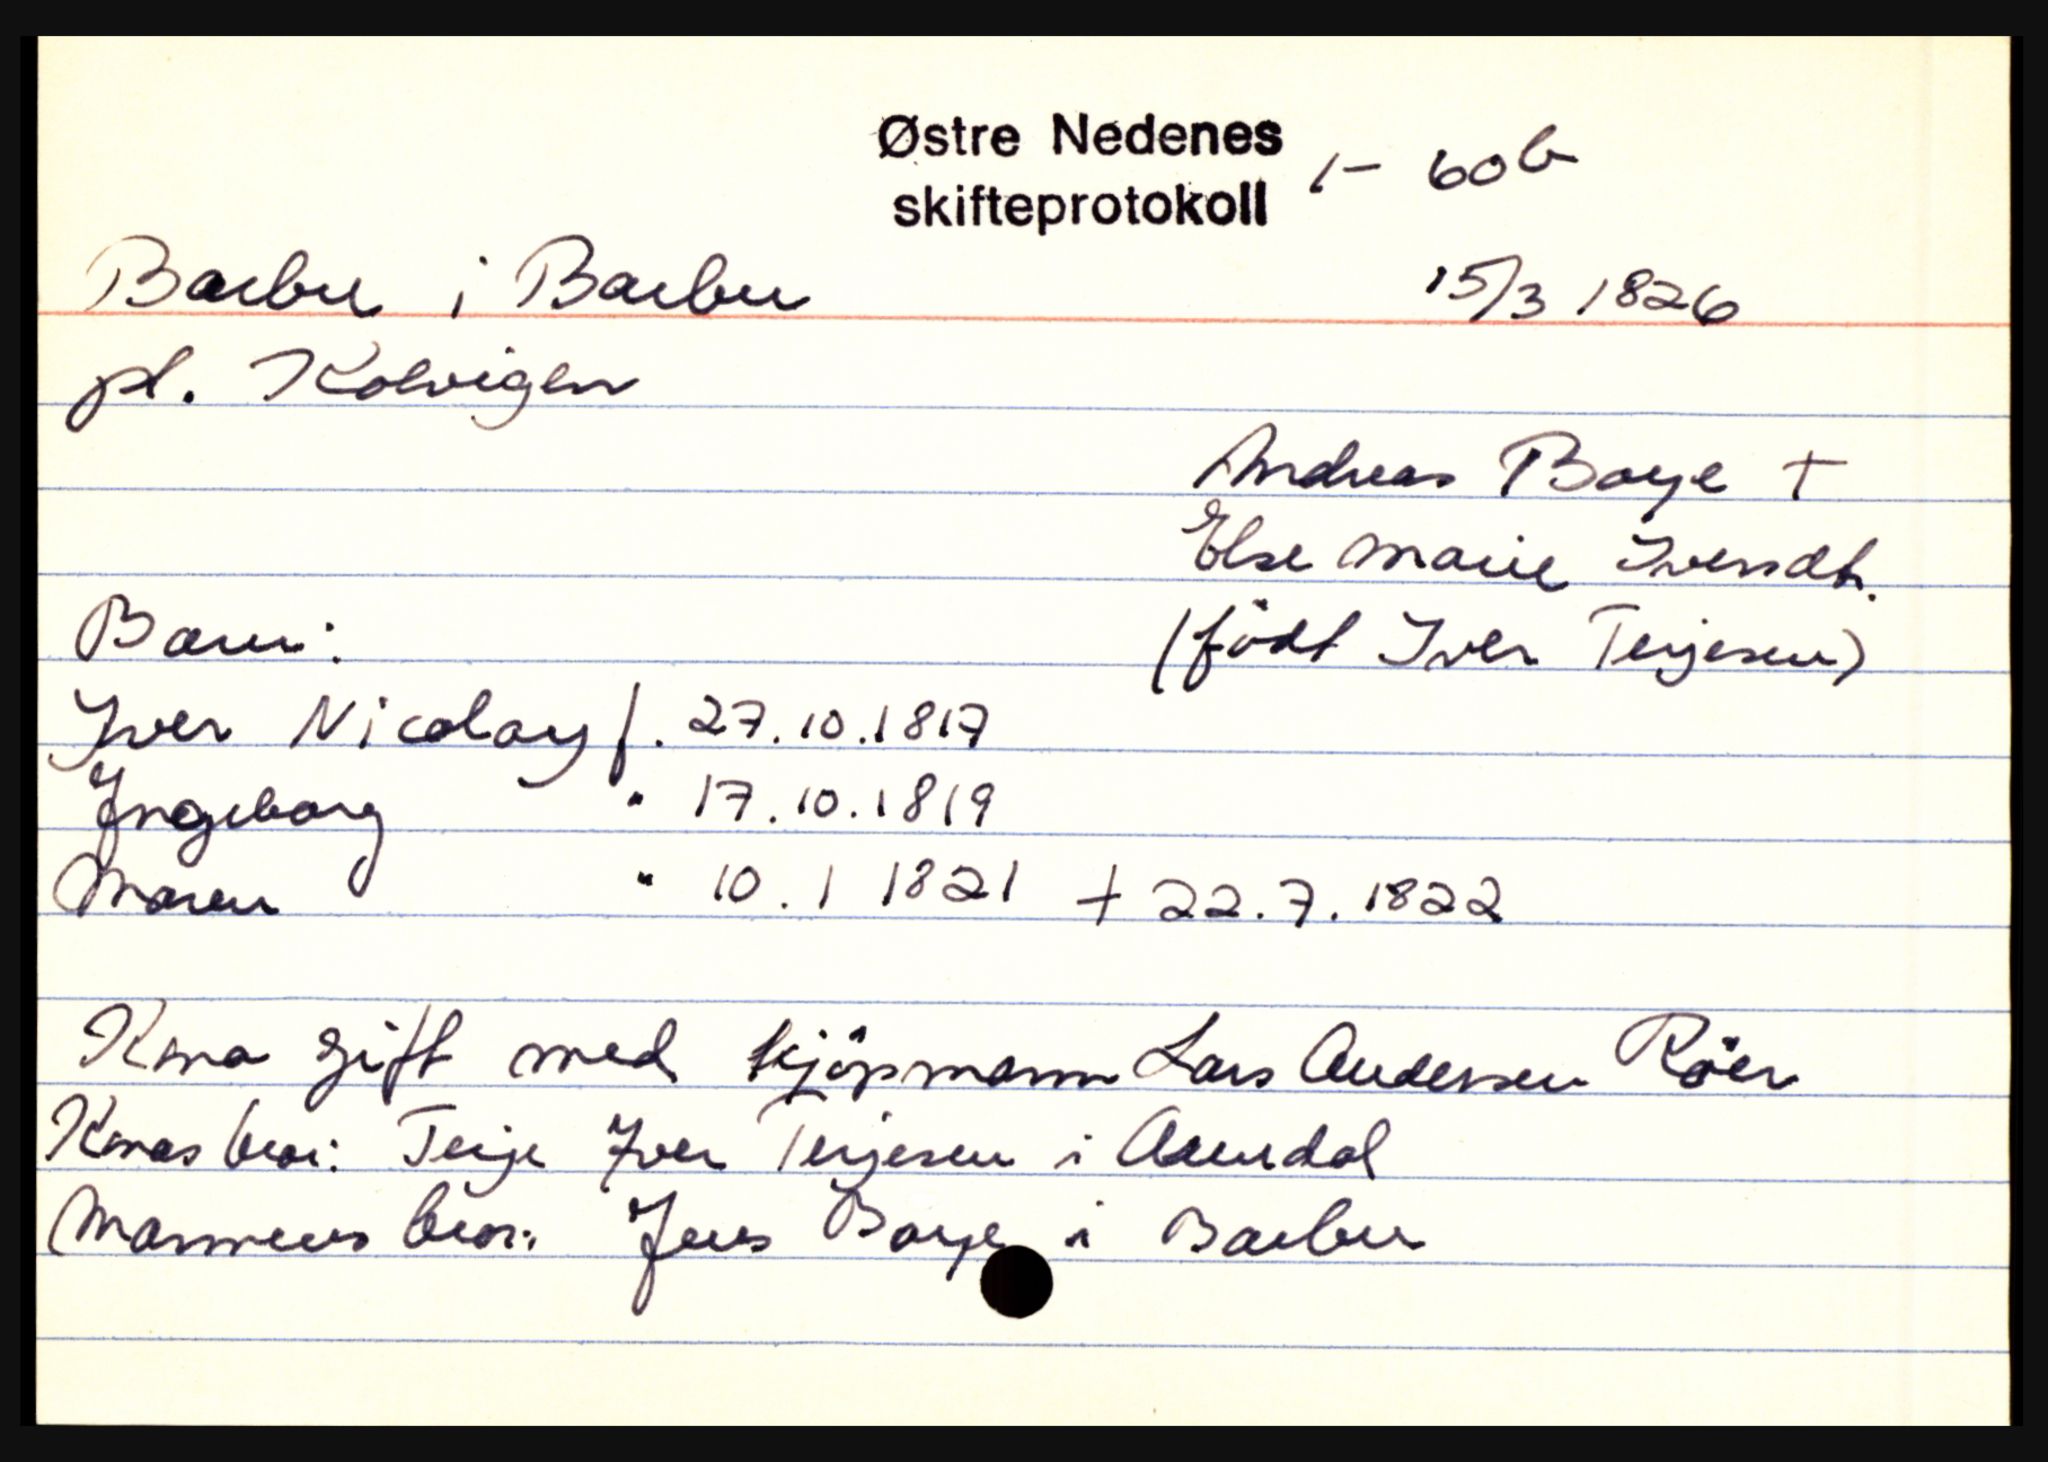 Østre Nedenes
skifteprotokoll 1- 60b
Barbu i Barbu 15/3 1826
pl. Kolvigen
Andreas Boye +
Else Marie Iversdt.
Barn: (födt Iver Terjesen)
Iver Nicolay f. 27.10.1817
Ingeborg " 17.10.1819
Maren " 10.1 1821 + 22.7.1822
Kona gift med kjöpmann Lars Andersen Röer
Konas bror: Terje Iver Terjesen i Arendal
Mannens bror: Jens Boye i Barbu